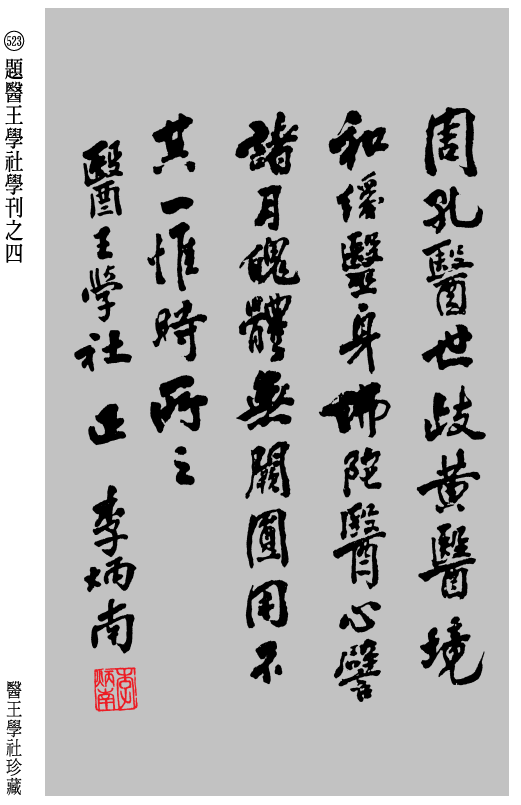 周孔醫世歧黃醫境
和緩毉身佛陀醫心譬
諸月魄體無闕圓用不
其一惟時所之
醫王學社 正 李炳南
李炳南
523 題醫王學社學刊之四
醫王學社珍藏